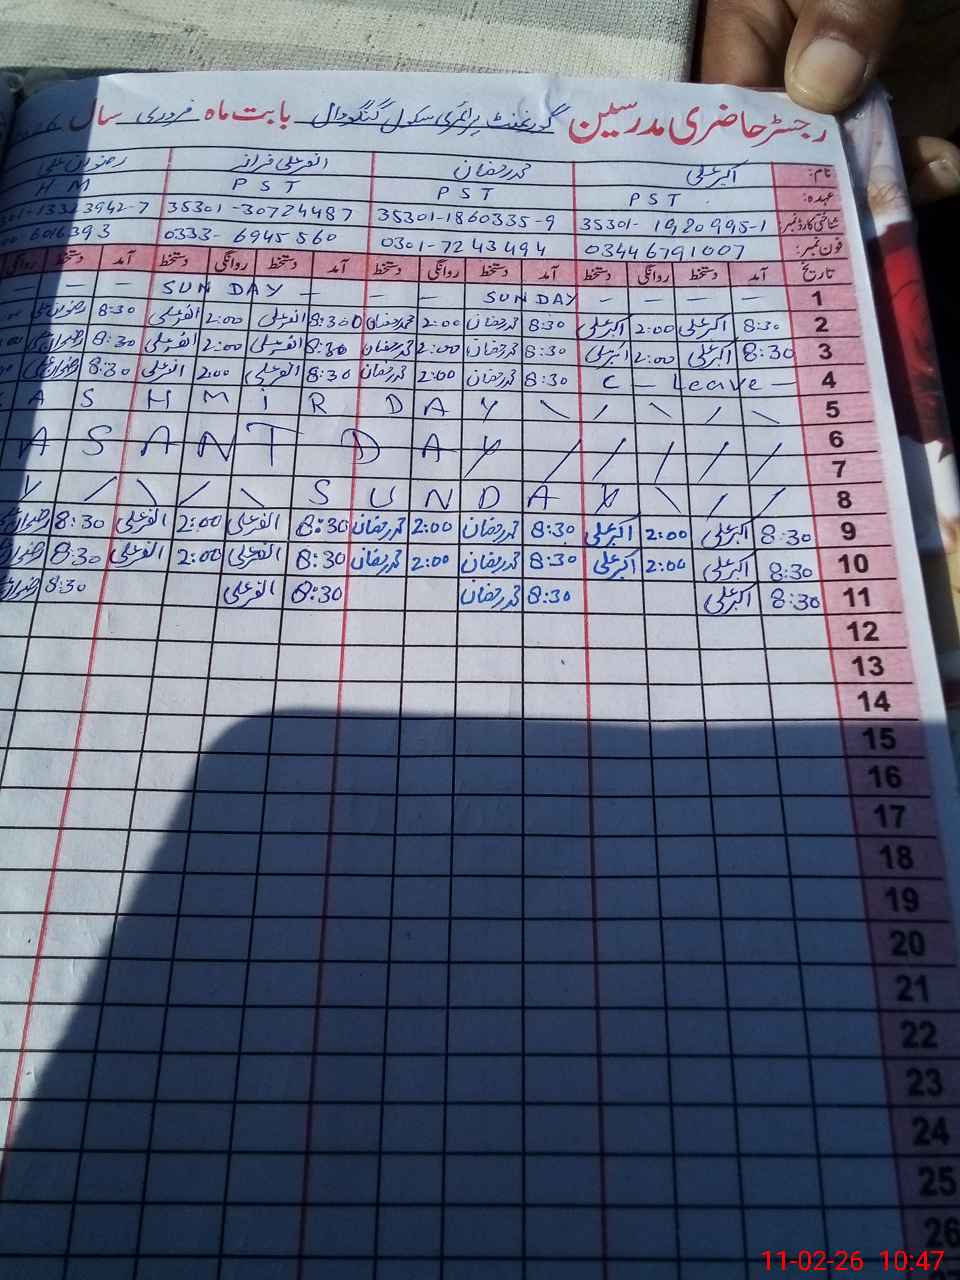 رجسٹر حاضری مدرسین گورنمنٹ پرائمری سکول گنگووال بابت ماہ فروری سال
نام: اکبر علی محمد رمضان الفر علی فراز رضوان علی
عہدہ: PST PST PST HM
شناختی کارڈ نمبر: 35301-1920995-1 35301-1860335-9 35301-30724487 3942-7
فون نمبر: 03446791007 0301-7243494 0333-6945560 6016393
تاریخ آمد دستخط روانگی دستخط آمد دستخط روانگی دستخط آمد دستخط روانگی دستخط آمد دستخط روانگی
1 — — — — SUNDAY — — — SUNDAY — — —
2 8:30 اکبر علی 2:00 اکبر علی 8:30 محمد رمضان 2:00 محمد رمضان 8:30 الفر علی 2:00 الفر علی 8:30 رضوان علی
3 8:30 اکبر علی 2:00 اکبر علی 8:30 محمد رمضان 2:00 محمد رمضان 8:30 الفر علی 2:00 الفر علی 8:30 رضوان علی
4 C — Leave — 8:30 محمد رمضان 2:00 محمد رمضان 8:30 الفر علی 2:00 الفر علی 8:30 رضوان علی
5 ASHMIR DAY
6
7 ASANT DAY
8 SUNDAY
9 8:30 اکبر علی 2:00 اکبر علی 8:30 محمد رمضان 2:00 محمد رمضان 8:30 الفر علی 2:00 الفر علی 8:30 رضوان علی
10 8:30 اکبر علی 2:00 اکبر علی 8:30 محمد رمضان 2:00 محمد رمضان 8:30 الفر علی 2:00 الفر علی 8:30 رضوان
11 8:30 اکبر علی 8:30 محمد رمضان 8:30 الفر علی 8:30 رضوان
12
13
14
15
16
17
18
19
20
21
22
23
24
25
26
11-02-26 10:47